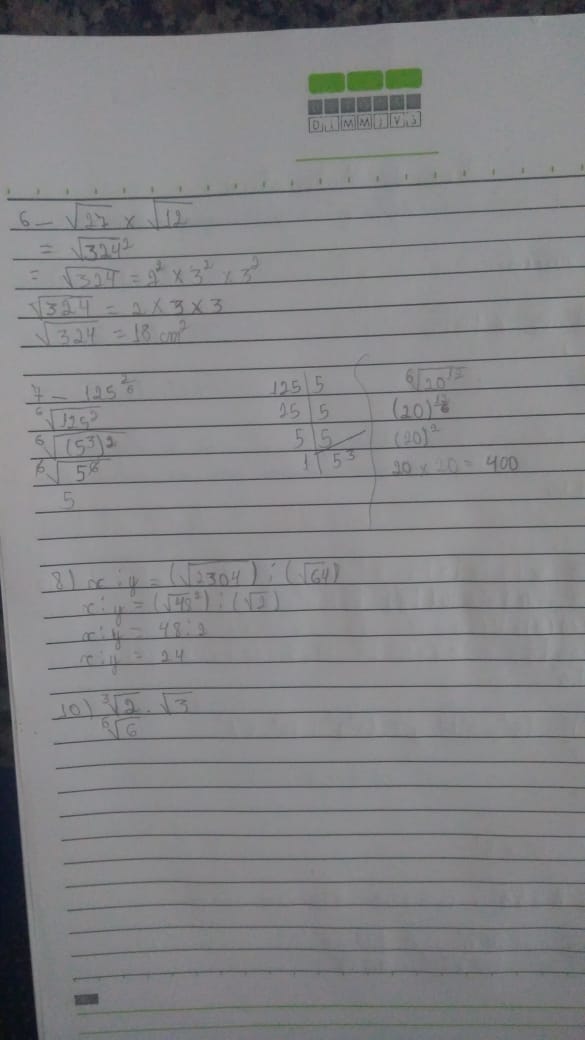 D i M M J V S
6 - √27 x √12
= √324²
= √324 = 2² x 3² x 3²
√324 = 2 x 3 x 3
√324 = 18 cm²
7 - 125^(2/6)
⁶√125²
⁶√(5³)2
⁶√5⁶
5
125 | 5
25 | 5
5 | 5
1 | 5³
⁶√20¹²
(20)^(12/6)
(20)²
20 x 20 = 400
8) x : y = (√2304) : (√64)
x : y = (√48²) : (√2)
x : y = 48 : 2
x : y = 24
10) ³√2 . √3
⁶√6